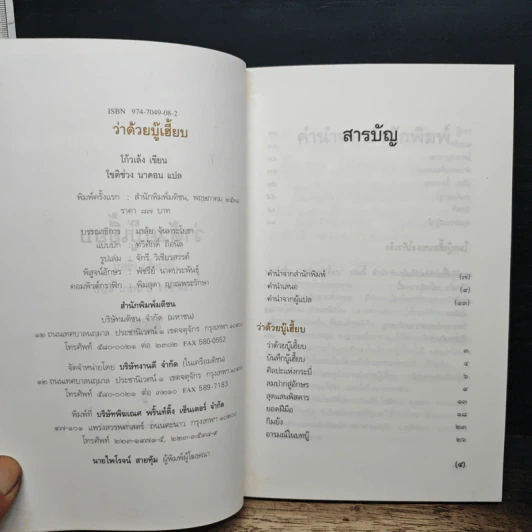 ISBN 974-7049-08-2
ว่าด้วยบู๊เฮี้ยบ
โก้วเล้ง เขียน
โชติช่วง นาดอน แปล
พิมพ์ครั้งแรก : สำนักพิมพ์มติชน, พฤษภาคม
ราคา ๘๗ บาท
บรรณาธิการ :
แบบปก :
รูปเล่ม : จักรี วิเชียรสรรค์
พิสูจน์อักษร : พัชรีย์ นาคประพันธุ์
คอมพิวต์กราฟิก : พิมสุดา ญาณพระรักษา
สำนักพิมพ์มติชน
บริษัทมติชน จำกัด (มหาชน)
๑๒ ถนนเทศบาลนฤมาล ประชานิเวศน์ ๑ เขตจตุจักร กรุงเทพฯ
โทรศัพท์ ๕๘๐-๐๐๒๑ ต่อ ๒๓๐๒ FAX 580-0552
จัดจำหน่ายโดย บริษัทงานดี จำกัด (ในเครือมติชน)
๑๒ ถนนเทศบาลนฤมาล ประชานิเวศน์ ๑ เขตจตุจักร กรุงเทพฯ
โทรศัพท์ ๕๘๐-๐๐๒๑ ต่อ FAX 589-7183
พิมพ์ที่ บริษัทพิฆเณศ พริ้นท์ติ้ง เซ็นเตอร์ จำกัด
๙๗-๑๐๑ แพร่งสรรพศาสตร์ ถนนตะนาว กรุงเทพฯ
โทรศัพท์
นายไพโรจน์ สายทุ้ม ผู้พิมพ์ผู้โฆษณา
สารบัญ
คำนำจากสำนักพิมพ์ (๗)
คำนำเสนอ (๙)
คำนำจากผู้แปล (๑๓)
ว่าด้วยบู๊เฮี้ยบ
ว่าด้วยบู๊เฮี้ยบ ๓
บันทึกบู๊เฮี้ยบ ๔
ศิลปะแห่งกระบี่ ๖
ลมปากสู่อักษร ๘
สุดแสนพิสดาร ๑๓
ยอดฝีมือ ๑๘
กิมย้ง ๒๓
อารมณ์ในบทบู๊ ๒๖
(๕)